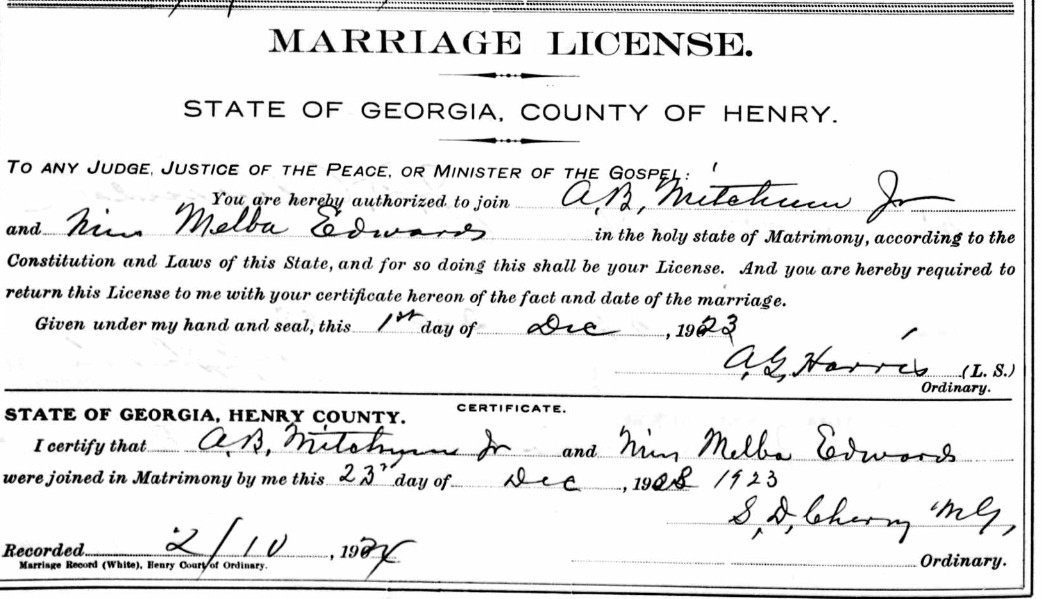 MARRIAGE LICENSE.
STATE OF GEORGIA, COUNTY OF HENRY.
TO ANY JUDGE, JUSTICE OF THE PEACE, OR MINISTER OF THE GOSPEL:
You are hereby authorized to join A. B. Mitchum Jr
and Miss Melba Edwards in the holy state of Matrimony, according to the
Constitution and Laws of this State, and for so doing this shall be your License. And you are hereby required to
return this License to me with your certificate hereon of the fact and date of the marriage.
Given under my hand and seal, this 1st day of Dec, 1923
A. G. Harris (L. S.)
Ordinary.
CERTIFICATE.
STATE OF GEORGIA, HENRY COUNTY.
I certify that A. B. Mitchum Jr and Miss Melba Edwards
were joined in Matrimony by me this 23rd day of Dec, 19 1923
S. D. Cherry M.G.
Recorded 2/10, 1924
Ordinary.
Marriage Record (White), Henry Court of Ordinary.